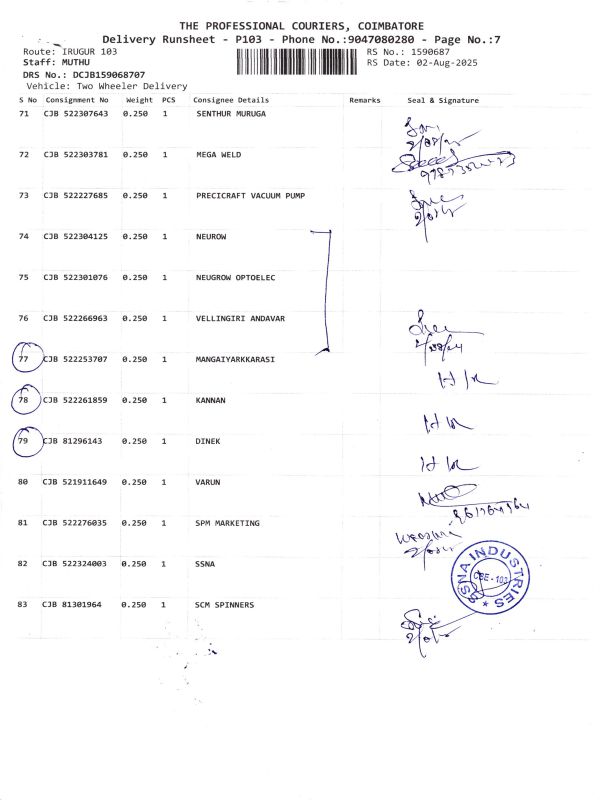 THE PROFESSIONAL COURIERS, COIMBATORE
Delivery Runsheet - P103 - Phone No.:9047080280 - Page No.:7
Route: IRUGUR 103 RS No.: 1590687
Staff: MUTHU RS Date: 02-Aug-2025
DRS No.: DCJB159068707
Vehicle: Two Wheeler Delivery
S No Consignment No Weight PCS Consignee Details Remarks Seal & Signature
71 CJB 522307643 0.250 1 SENTHUR MURUGA
72 CJB 522303781 0.250 1 MEGA WELD
73 CJB 522227685 0.250 1 PRECICRAFT VACUUM PUMP
74 CJB 522304125 0.250 1 NEUROW
75 CJB 522301076 0.250 1 NEUGROW OPTOELEC
76 CJB 522266963 0.250 1 VELLINGIRI ANDAVAR
77 CJB 522253707 0.250 1 MANGAIYARKKARASI
78 CJB 522261859 0.250 1 KANNAN
79 CJB 81296143 0.250 1 DINEK
80 CJB 521911649 0.250 1 VARUN
81 CJB 522276035 0.250 1 SPM MARKETING
82 CJB 522324003 0.250 1 SSNA
SSNA INDUSTRIES
CBE - 103
83 CJB 81301964 0.250 1 SCM SPINNERS